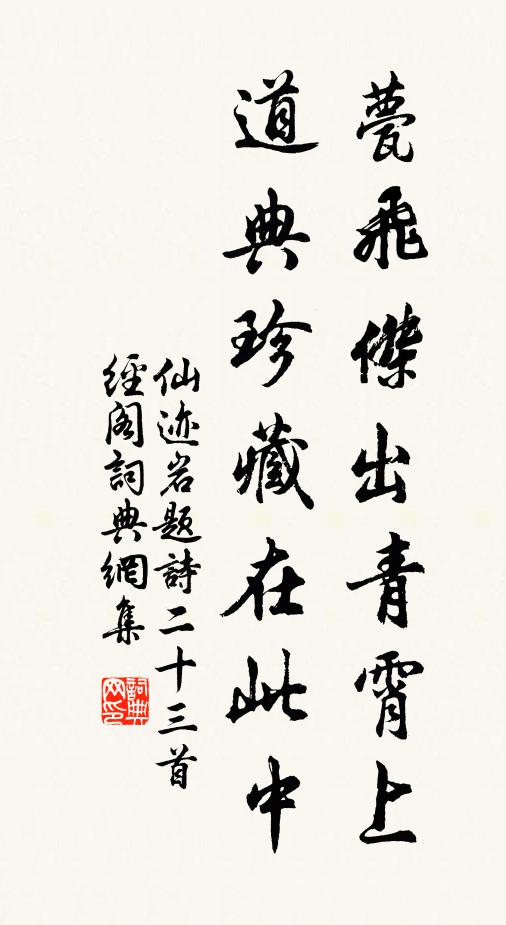 甍飛傑出青霄上
道典珍藏在此中
仙迹岩题詩二十三首
經阁詞典網集
詞典
网印